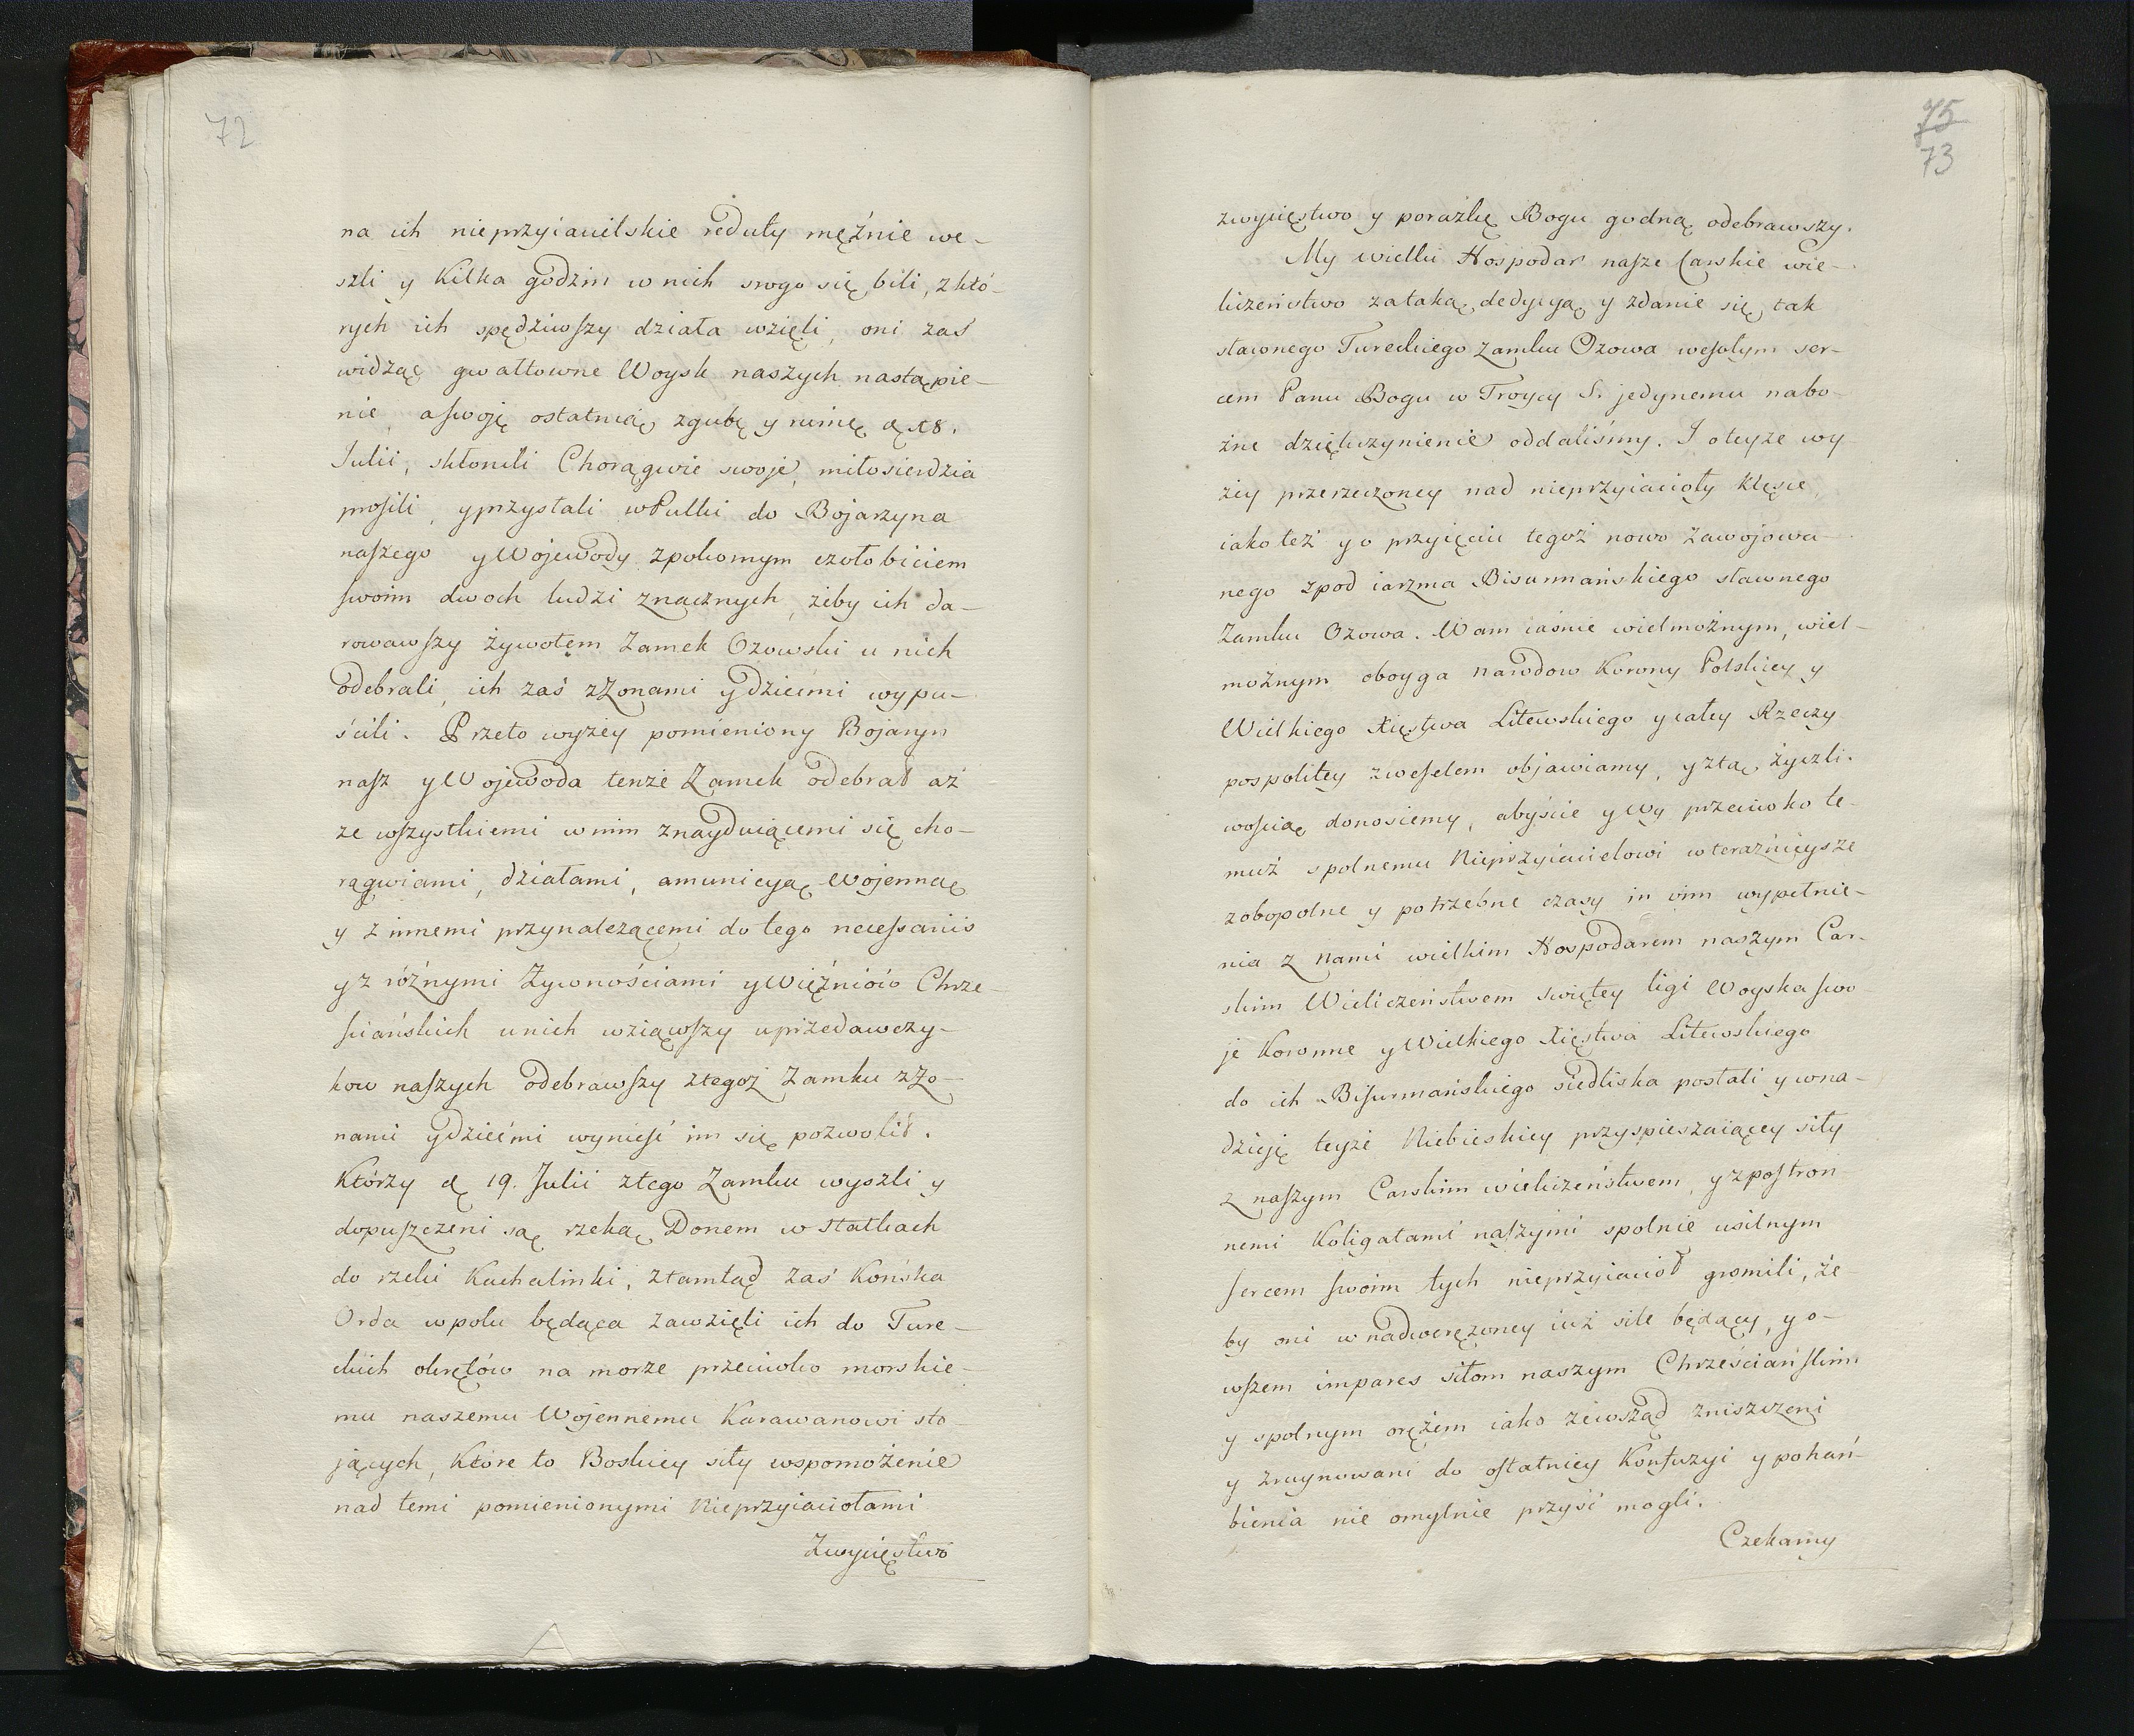 72
na ich nieprzyiacielskie reduty mężnie we-
szli y kilka godzin w nich srogo się bili, z któ-
rych ich spędziwszy działa wzięli, oni zaś
widząc gwałtowne Woysk naszych nastąpie-
nie, a swoię ostatnią zgubę y ruinę d. 18.
Julii, skłonili Chorągwie swoje, miłosierdzia
prosili, y przysłali w Pułki do Bojarzyna
naszego y Wojewody z pokornym czołobiciem
swoim dwoch ludzi znacznych, żeby ich da-
rowawszy żywotem Zamek Ozowski u nich
odebrali, ich zaś z Zonami y dziećmi wypu-
ścili. Przeto wyżey pomieniony Bojaryn
nasz y Wojewoda tenże Zamek odebrał aż
ze wszystkiemi w nim znayduiącemi się cho-
rągwiami, działami, amunicyą Wojenną
y z innemi przynależącemi do tego necessariis
y z różnymi Zywnościami y Więźniów Chrze-
sciańskich u nich wziąwszy u przedawczy-
kow naszych odebrawszy z tegoż Zamku z Zo-
nami y dziećmi wynieść im się pozwolił.
Którzy d. 19. Julii z tego Zamku wyszli y
dopuszczeni są rzeką Donem w statkach
do rzeki Kachalinki, ztamtąd zaś Końska
Orda w polu będąca zawzięli ich do Ture-
ckich okrętów na morze przeciwko morskie-
mu naszemu Wojennemu Karawanowi sto-
jących, które to Boskiey siły wspomożenie
nad temi pomienionymi Nieprzyiaciołami
Zwycięstwo
75
73
zwycięstwo y porażkę Bogu godną odebrawszy.
My wielki Hospodar nasze Carskie wie-
liczeństwo za taką dedycyą y zdanie się tak
sławnego Tureckiego Zamku Ozowa wesołym ser-
cem Panu Bogu w Troycy S. jedynemu nabo-
żne dziękczynienie oddaliśmy. I o teyże wy-
żey przerzeczoney nad nieprzyiacioły klęsce,
iako też y o przyięciu tegoż nowo zawojowa-
nego z pod iarzma Bisurmańskiego sławnego
Zamku Ozowa. Wam iaśnie wielmożnym, wiel-
możnym oboyga narodow Korony Polskiey y
Wielkiego Xięstwa Litewskiego y całey Rzeczy
pospolitey z weselem objawiamy, y z tą życzli-
wością donosiemy, abyście y Wy przeciwko te-
muż spolnemu Nieprzyiacielowi w teraźnieysze
zobopolne y potrzebne czasy in vim wypełnie-
nia z Nami wielkim Hospodarem naszym Car-
skim Wieliczeństwem swiętey ligi Woyska swo-
je Koronne y Wielkiego Xięstwa Litewskiego
do ich Bisurmańskiego siedliska posłali y w na-
dzieję teyże Niebieskiey przyspieszaiącey siły
z naszym Carskim wieliczeństwem, y z postron-
nemi Koligatami naszymi spolnie usilnym
sercem swoim tych nieprzyiaciół gromili, że-
by oni w nadwerężoney iuż sile będący, y o-
wszem impares siłom naszym Chrześciańskim
y spolnym orężem iako zewsząd zniszczeni
y zruynowani do ostatniey Konfuzyi y pohań-
bienia nie omylnie przyść mogli.
Czekamy